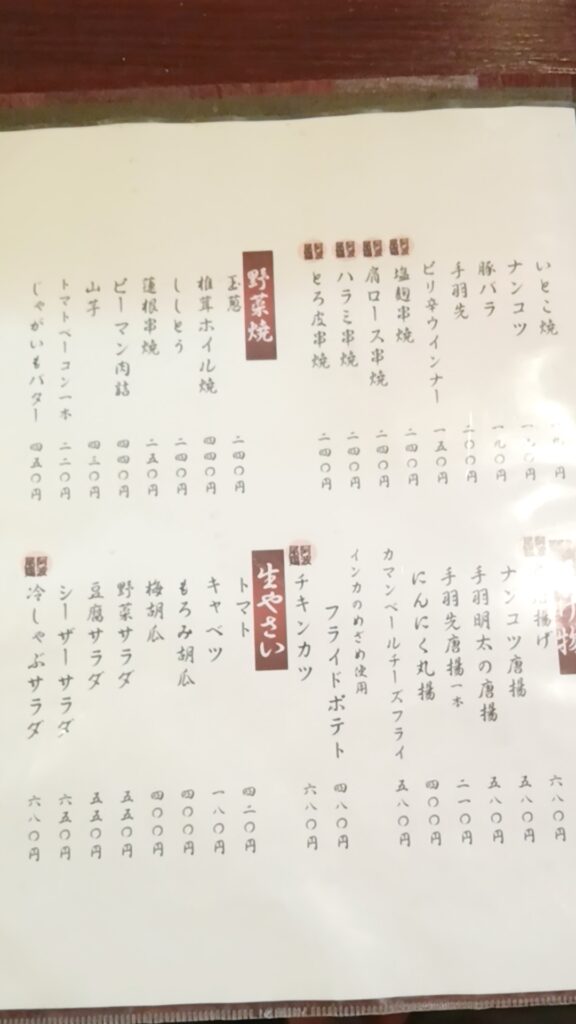 いとこ焼
ナンコツ
豚バラ 一九〇円
手羽先 二〇〇円
ピリ辛ウインナー 一五〇円
塩麹串焼 二四〇円
肩ロース串焼 二四〇円
ハラミ串焼 二四〇円
とろ皮串焼 二四〇円
野菜焼
玉葱 二四〇円
椎茸ホイル焼 四四〇円
ししとう 二四〇円
蓮根串焼 二五〇円
ピーマン肉詰 四四〇円
山芋 四三〇円
トマトベーコン一本 二二〇円
じゃがいもバター 四五〇円
揚げ 六八〇円
ナンコツ唐揚 五八〇円
手羽明太の唐揚 五八〇円
手羽先唐揚一本 二一〇円
にんにく丸揚 四〇〇円
カマンベールチーズフライ 五八〇円
フライドポテト 四八〇円
インカのめざめ使用
チキンカツ 六八〇円
生やさい
トマト 四二〇円
キャベツ 一八〇円
もろみ胡瓜 四〇〇円
梅胡瓜 四〇〇円
野菜サラダ 五五〇円
豆腐サラダ 五五〇円
シーザーサラダ 六五〇円
冷しゃぶサラダ 六八〇円